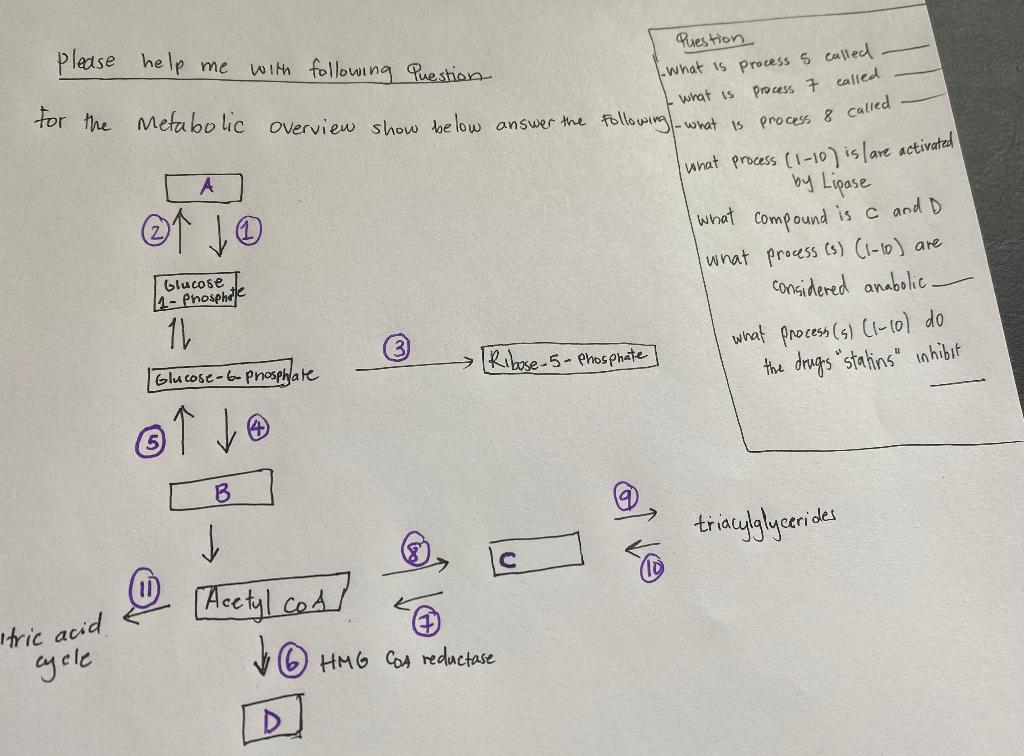 Please help me with following Question
For the Metabolic overview show below answer the following
Question
-what is process 5 called
- what is process 7 called
- what is process 8 called
what process (1-10) is/are activated
by Lipase
what compound is C and D
what process(s) (1-10) are
considered anabolic
what process(s) (1-10) do
the drugs "statins" inhibit
A
2
1
Glucose
1-Phosphate
3
Ribose-5-Phosphate
Glucose-6-Phosphate
5
4
B
9
triacylglycerides
8
C
10
11
Acetyl CoA
7
itric acid
cycle
6 HMG CoA reductase
D